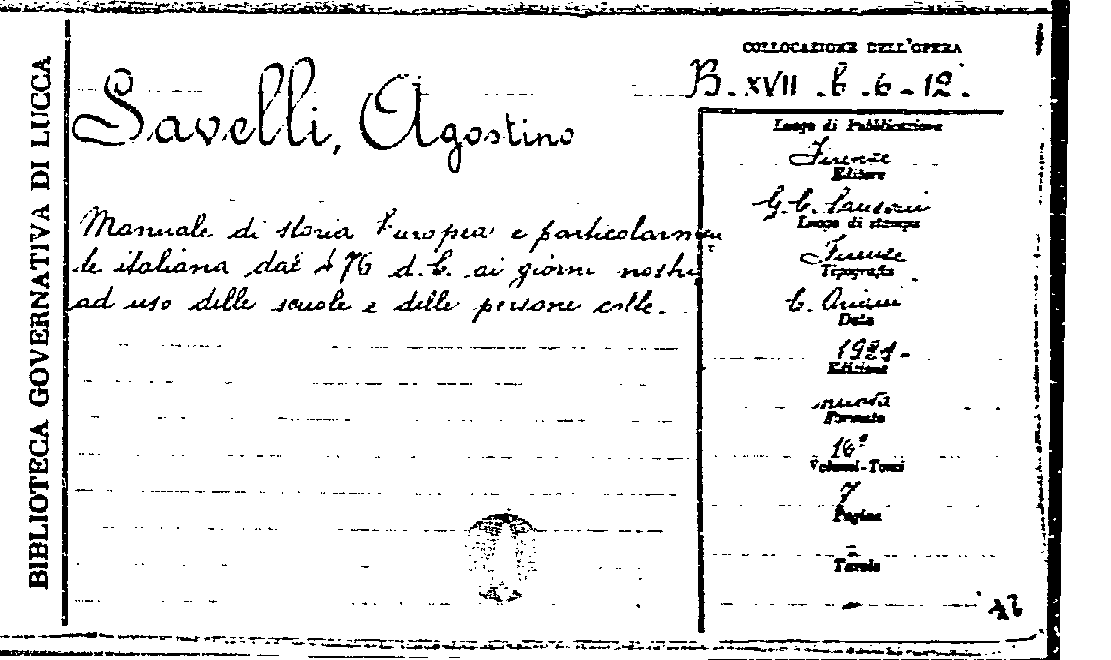 BIBLIOTECA GOVERNATIVA DI LUCCA
COLLOCAZIONE DELL'OPERA
B. XVII . b . 6 - 12 .
Savelli, Agostino
Manuale di storia Europea e particolarmen
te italiana dal 476 d. C. ai giorni nostri
ad uso delle scuole e delle persone colte.
Luogo di Pubblicazione
Firenze
Editore
G. C. Sansoni
Luogo di stampa
Firenze
Tipografia
C. Ariani
Data
Edizione
nuova
Formato
16°
Volumi-Tomi
7
Pagine
-
Tavole
-